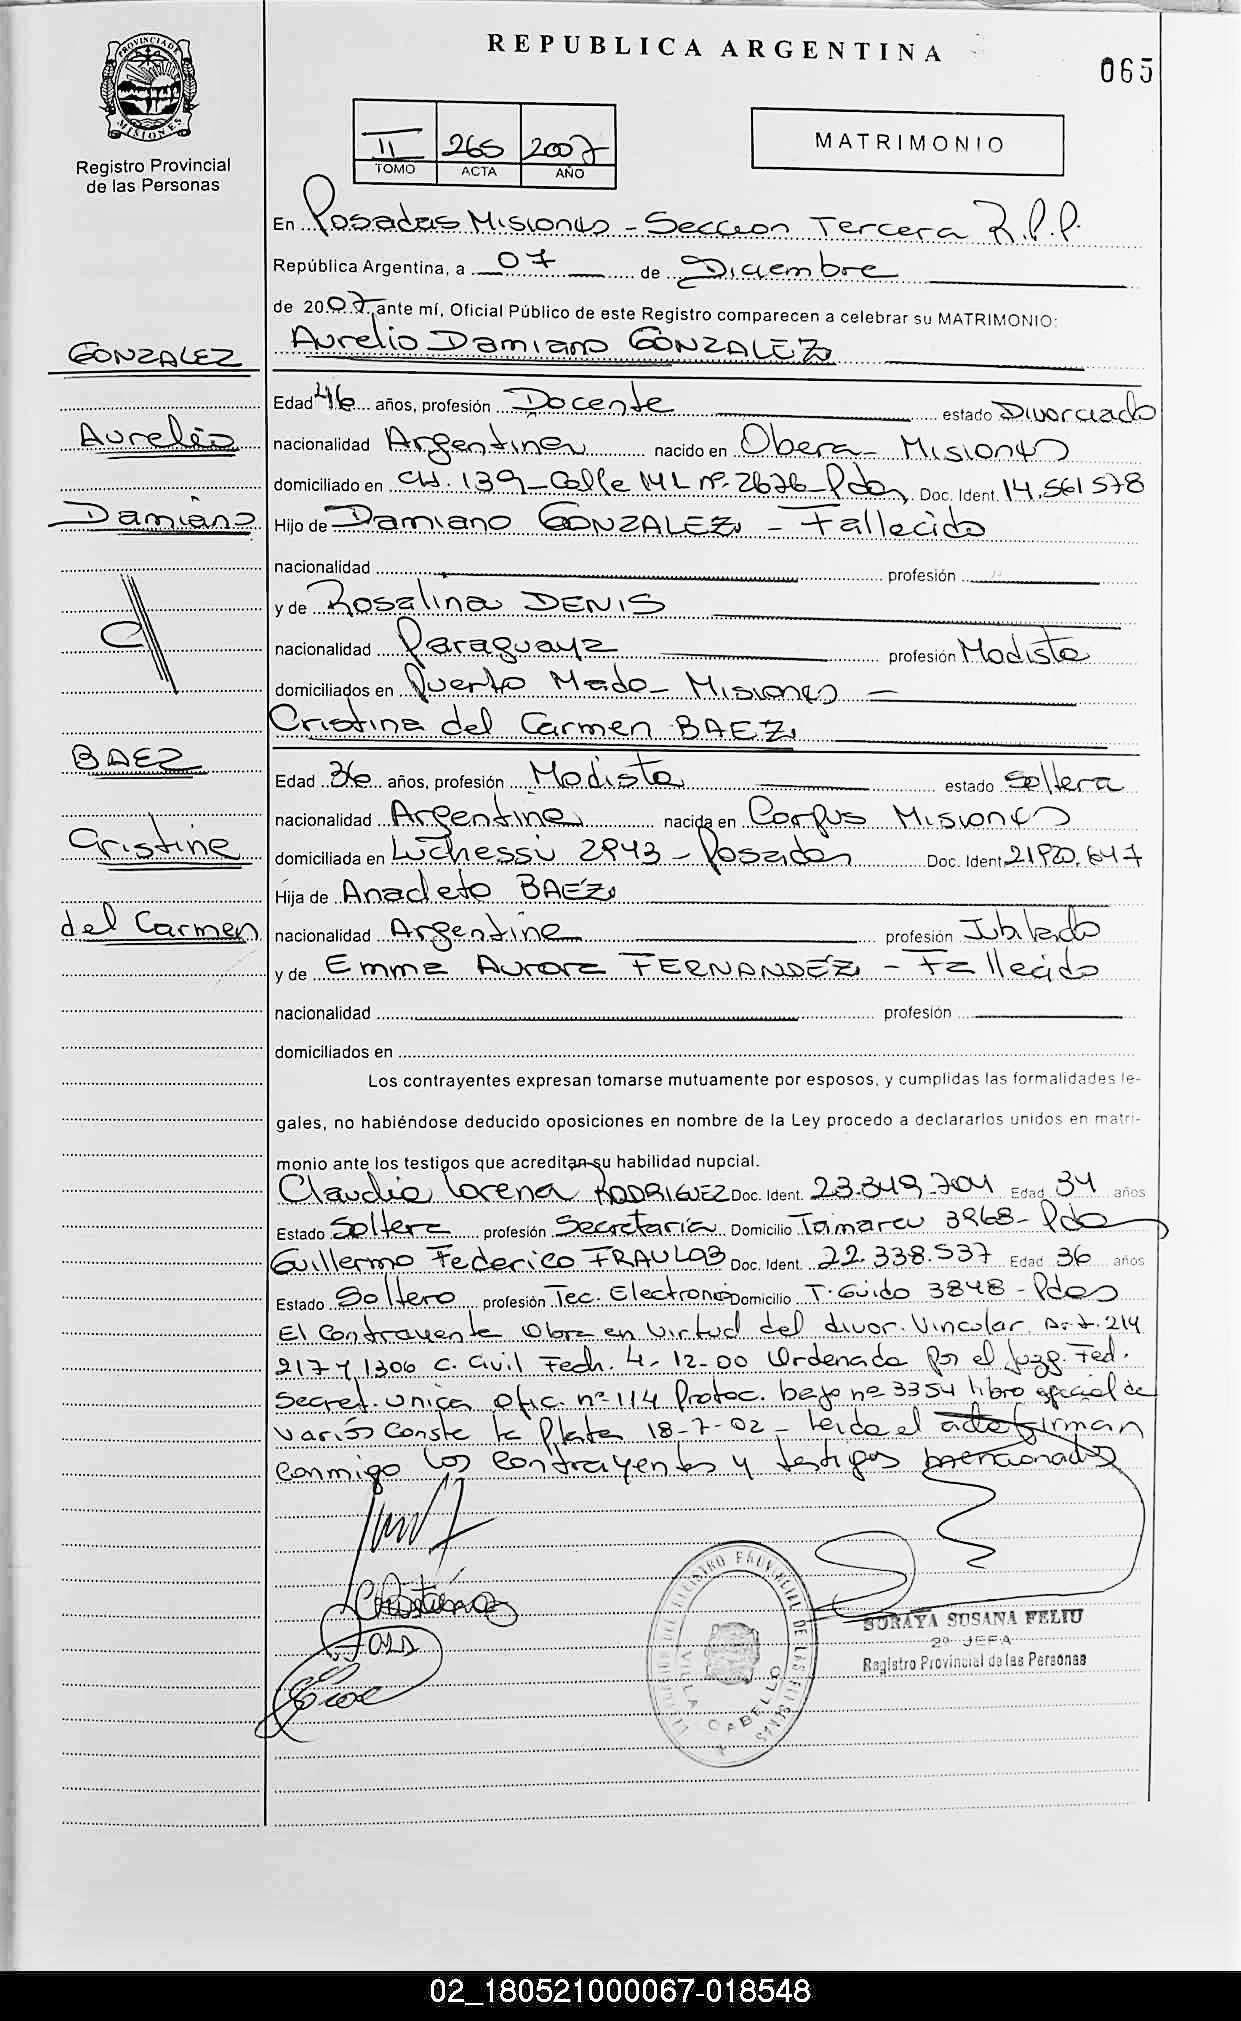 REPUBLICA ARGENTINA
065
PROVINCIA DE MISIONES
Registro Provincial
de las Personas
II 265 2007
TOMO ACTA AÑO
MATRIMONIO
En Posadas Misiones - Seccion Tercera R.P.P.
República Argentina, a 07 de Diciembre
de 2007 ante mí, Oficial Público de este Registro comparecen a celebrar su MATRIMONIO:
Aurelio Damiano GONZALEZ
GONZALEZ
Edad 46 años, profesión Docente estado Divorciado
Aurelio
nacionalidad Argentina nacido en Obera - Misiones
domiciliado en CH. 139 - Calle ML nº 2676 - Pdas, Doc. Ident. 14.561578
Damiano
Hijo de Damiano GONZALEZ - Fallecido
nacionalidad profesión
y de Rosalina DENIS
nacionalidad Paraguaya profesión Modista
domiciliados en Puerto Mado - Misiones
Cristina del Carmen BAEZ
BAEZ
Edad 36 años, profesión Modista estado Soltera
nacionalidad Argentina nacida en Corpus Misiones
Cristina
domiciliada en Luchessi 2943 - Posadas Doc. Ident 21920.647
Hija de Anacleto BAEZ
del Carmen
nacionalidad Argentina profesión Jubilado
y de Emma Aurora FERNANDEZ - Fallecido
nacionalidad profesión
domiciliados en
Los contrayentes expresan tomarse mutuamente por esposos, y cumplidas las formalidades le-
gales, no habiéndose deducido oposiciones en nombre de la Ley procedo a declararlos unidos en matri-
monio ante los testigos que acreditan su habilidad nupcial.
Claudia Lorena RODRIGUEZ Doc. Ident. 23.349.704 Edad 34 años
Estado Soltera profesión Secretaria Domicilio Tamareu 3968 - Pdas
Guillermo Federico FRAULOB Doc. Ident. 22.338.537 Edad 36 años
Estado Soltero profesión Tec. Electronico Domicilio T. Guido 3848 - Pdas
El Contrayente Obra en virtud del divor. Vincular. Art. 214
217 y 1306 C. Civil Fech. 4-12-00 Ordenado por el Juzg. Fed.
Secret. Unica Ofic. nº 114 Protoc. bajo nº 3354 libro especial de
Varios Conste La Plata 18-7-02 - Leida el acta firman
conmigo los contrayentes y testigos mencionados
REGISTRO PROVINCIAL DE LAS PERSONAS
VILLA CABELLO
SORAYA SUSANA FELIU
2º JEFA
Registro Provincial de las Personas
02_180521000067-018548